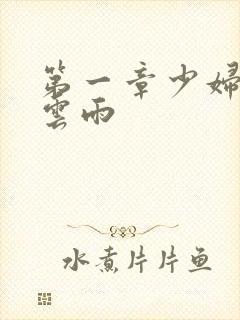 第一章少婦
雲雨
水煮片片鱼